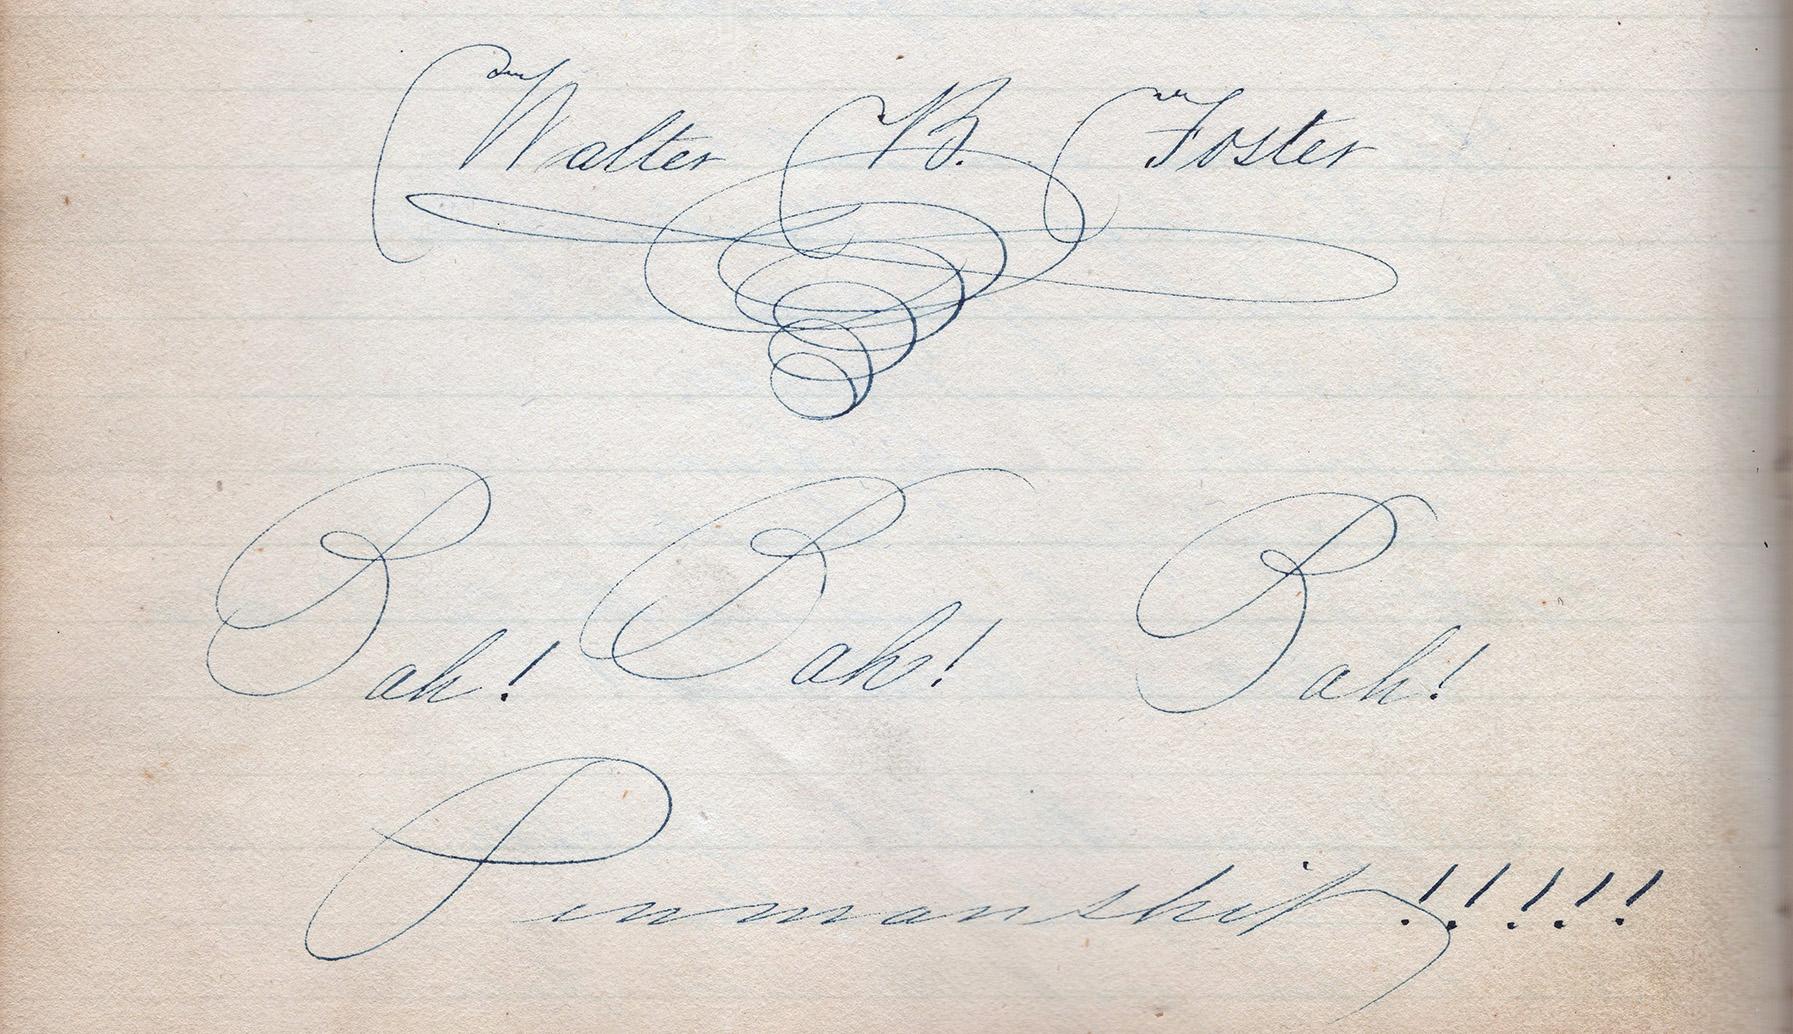 Walter B. Foster
Bah! Bah! Bah!
Penmanship!!!!!